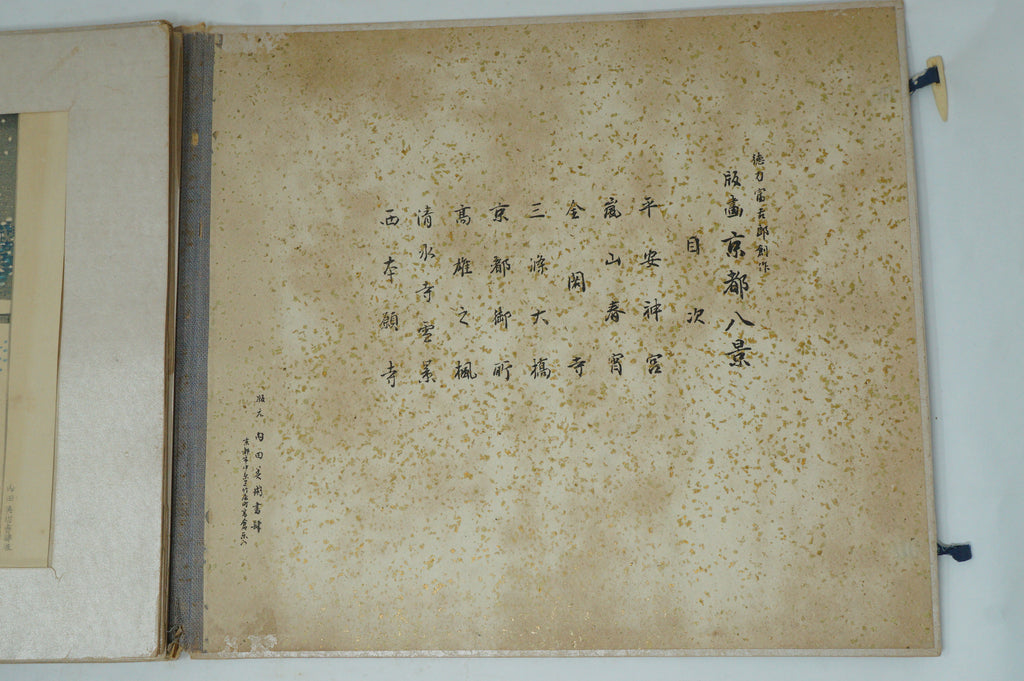 徳力富吉郎創作
版画京都八景
目次
平安神宮
嵐山春宵
金閣寺
三條大橋
京都御所
高雄之楓
清水寺雪景
西本願寺
版元 内田美術書肆
京都市中京区竹屋町